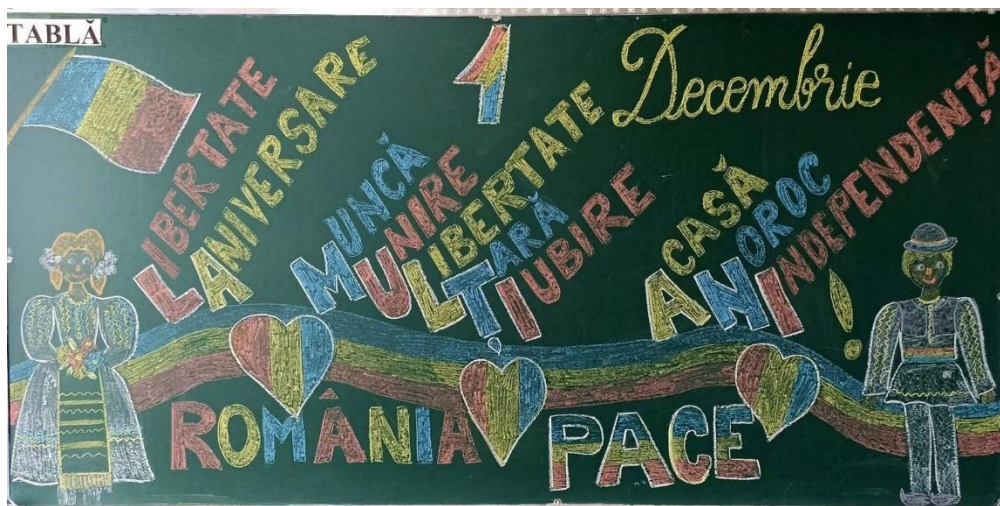 TABLĂ
1 Decembrie
LIBERTATE
ANIVERSARE
MUNCĂ
UNIRE
LIBERTATE
ȚARĂ
IUBIRE
ACASĂ
NOROC
INDEPENDENȚĂ
!
ROMÂNIA PACE